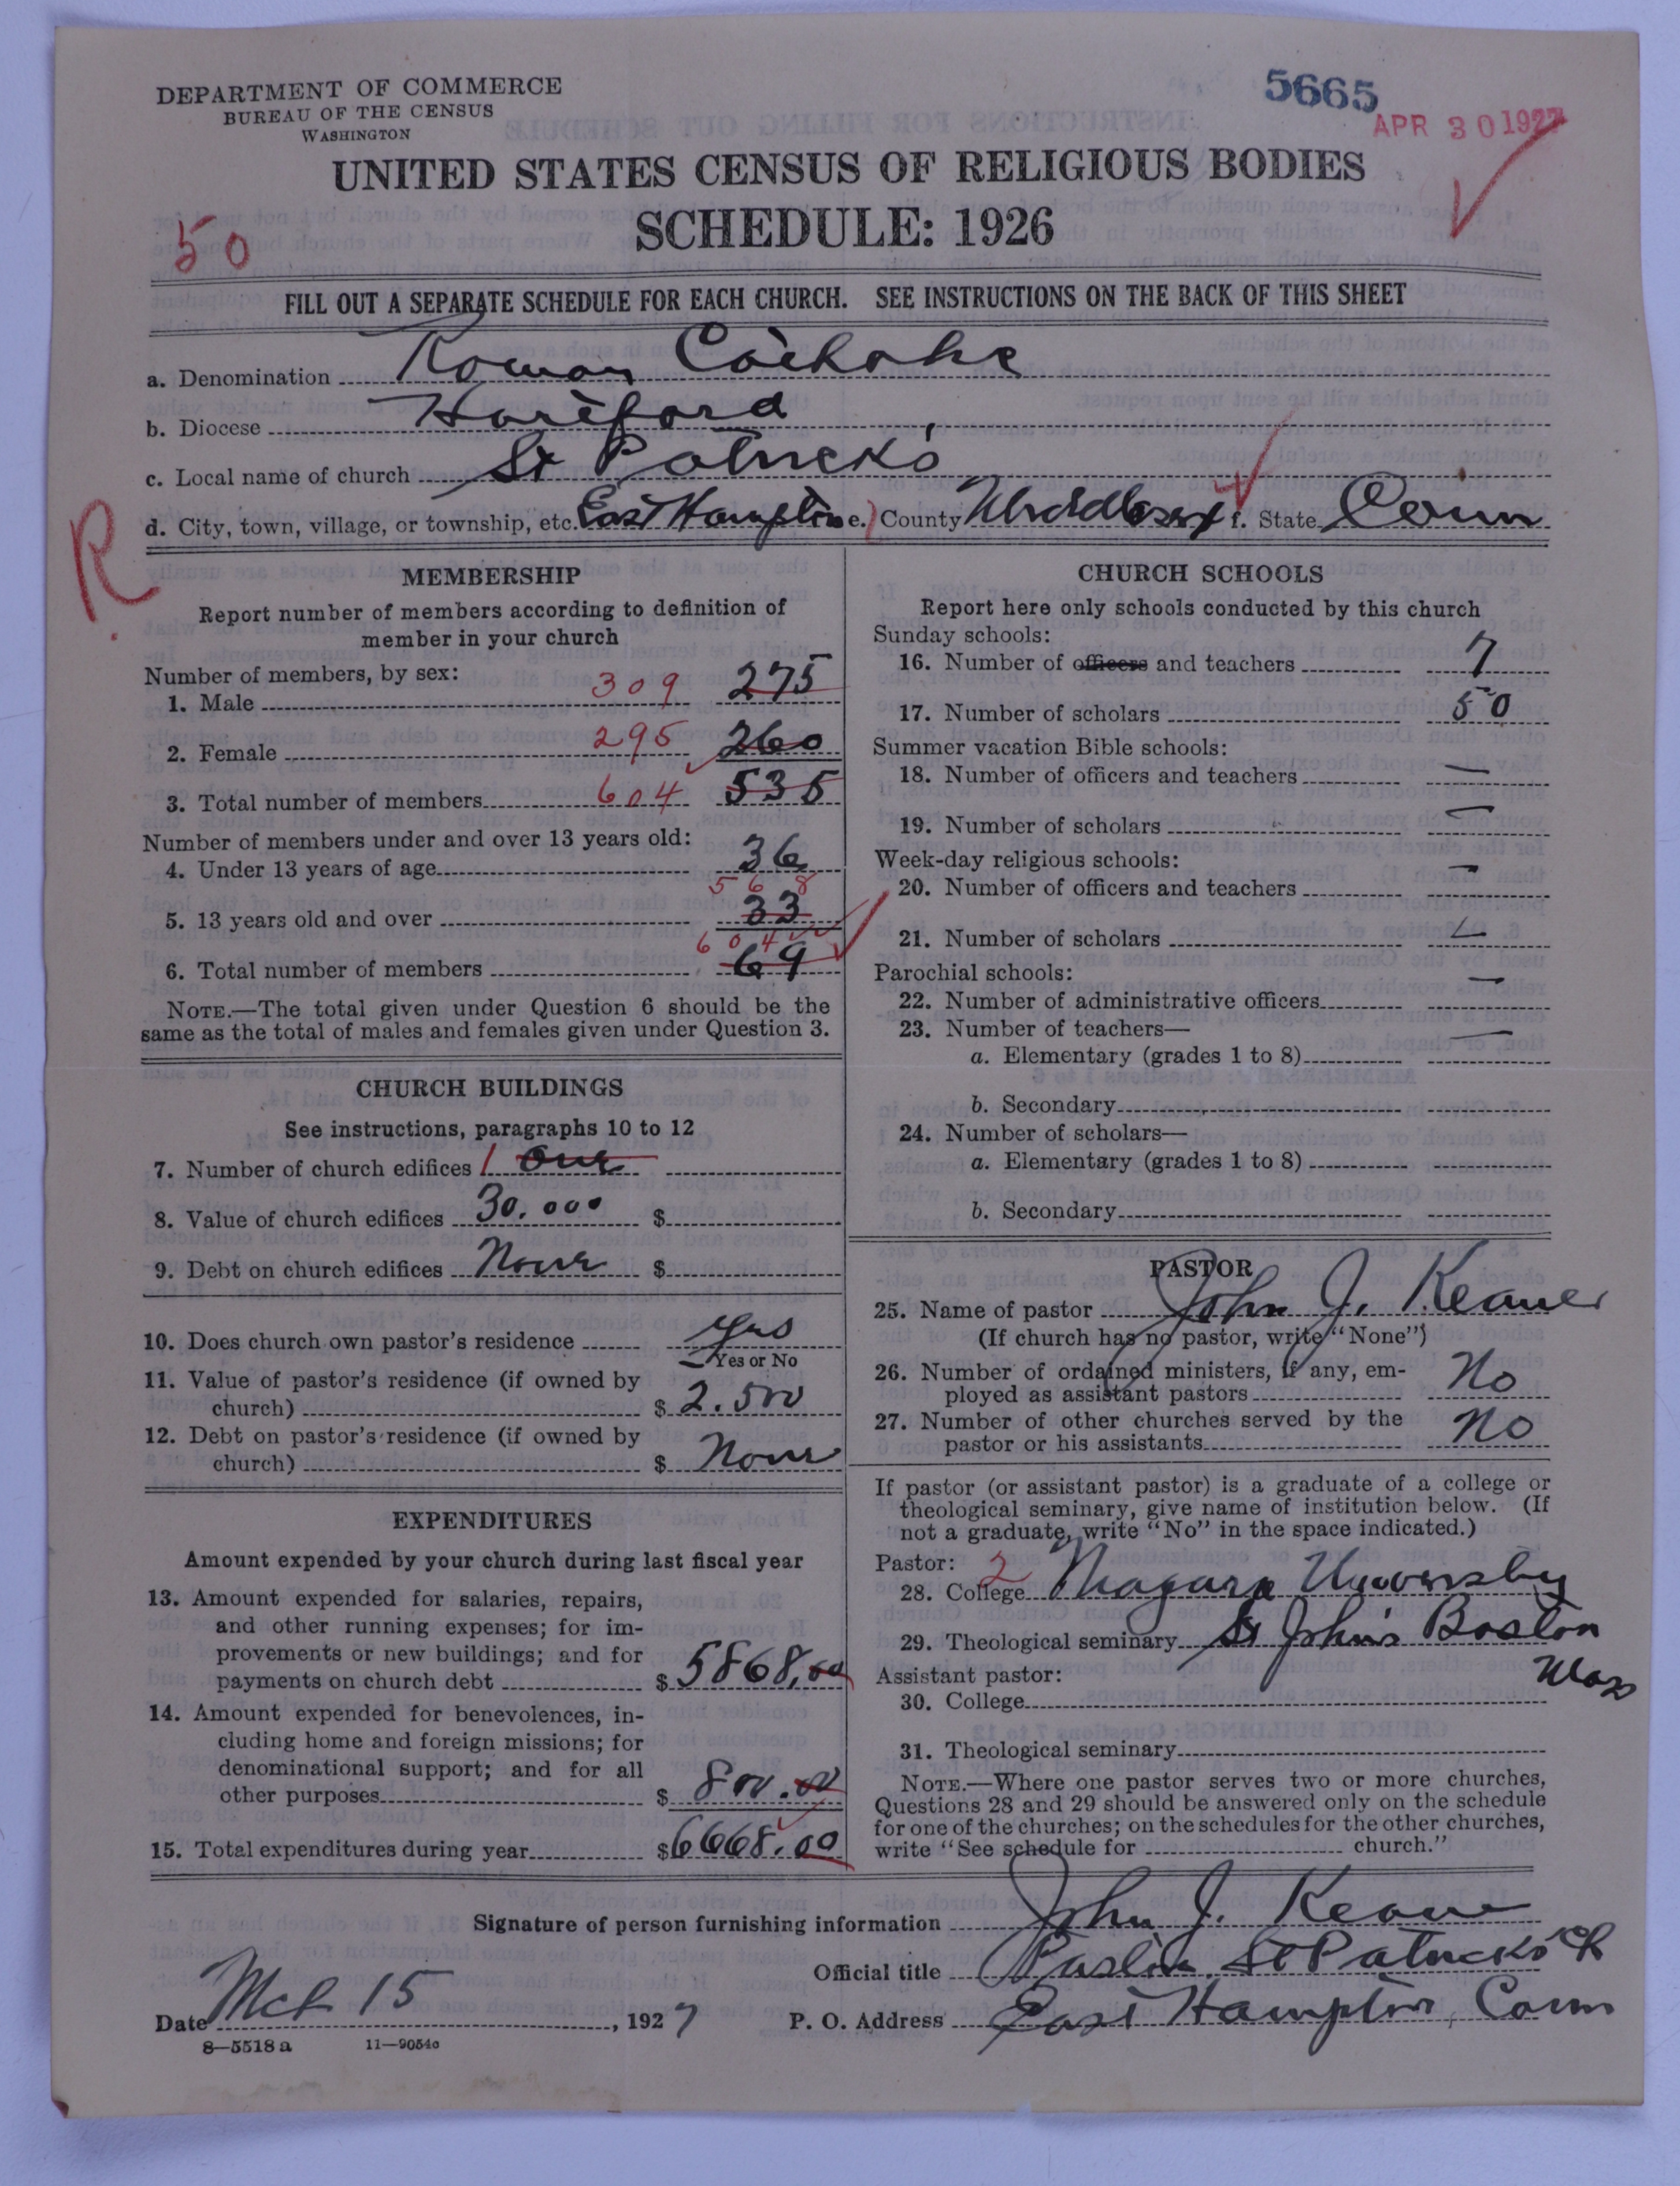 DEPARTMENT OF COMMERCE
BUREAU OF THE CENSUS
WASHINGTON
5665
APR 30 1927
UNITED STATES CENSUS OF RELIGIOUS BODIES
SCHEDULE: 1926
50
FILL OUT A SEPARATE SCHEDULE FOR EACH CHURCH. SEE INSTRUCTIONS ON THE BACK OF THIS SHEET
a. Denomination Roman Catholic
b. Diocese Hartford
c. Local name of church St Patrick's
d. City, town, village, or township, etc. East Hampton e. County Middlesex f. State Conn
R
MEMBERSHIP
Report number of members according to definition of
member in your church
Number of members, by sex:
1. Male 309 275
2. Female 295 260
3. Total number of members 604 535
Number of members under and over 13 years old:
4. Under 13 years of age 36
568
5. 13 years old and over 33
604
6. Total number of members 69
NOTE.—The total given under Question 6 should be the
same as the total of males and females given under Question 3.
CHURCH BUILDINGS
See instructions, paragraphs 10 to 12
7. Number of church edifices 1 One
8. Value of church edifices 30.000 $
9. Debt on church edifices None $
10. Does church own pastor's residence Yes
Yes or No
11. Value of pastor's residence (if owned by
church) $ 2.500
12. Debt on pastor's residence (if owned by
church) $ None
EXPENDITURES
Amount expended by your church during last fiscal year
13. Amount expended for salaries, repairs,
and other running expenses; for im-
provements or new buildings; and for
payments on church debt $ 5868.00
14. Amount expended for benevolences, in-
cluding home and foreign missions; for
denominational support; and for all
other purposes $ 800.00
15. Total expenditures during year $ 6668.00
CHURCH SCHOOLS
Report here only schools conducted by this church
Sunday schools:
16. Number of officers and teachers 7
17. Number of scholars 50
Summer vacation Bible schools:
18. Number of officers and teachers —
19. Number of scholars —
Week-day religious schools:
20. Number of officers and teachers —
21. Number of scholars —
Parochial schools:
22. Number of administrative officers —
23. Number of teachers—
a. Elementary (grades 1 to 8) —
b. Secondary
24. Number of scholars—
a. Elementary (grades 1 to 8)
b. Secondary
PASTOR
25. Name of pastor John J. Keane
(If church has no pastor, write "None")
26. Number of ordained ministers, if any, em-
ployed as assistant pastors No
27. Number of other churches served by the
pastor or his assistants No
If pastor (or assistant pastor) is a graduate of a college or
theological seminary, give name of institution below. (If
not a graduate, write "No" in the space indicated.)
Pastor: 2
28. College Niagara University
29. Theological seminary St John's Boston
Mass
Assistant pastor:
30. College
31. Theological seminary
NOTE.—Where one pastor serves two or more churches,
Questions 28 and 29 should be answered only on the schedule
for one of the churches; on the schedules for the other churches,
write "See schedule for church."
Signature of person furnishing information John J. Keane
Official title Pastor St Patrick's Ch
Date Mch 15, 1927
P. O. Address East Hampton, Conn
8—5518 a 11—9054c